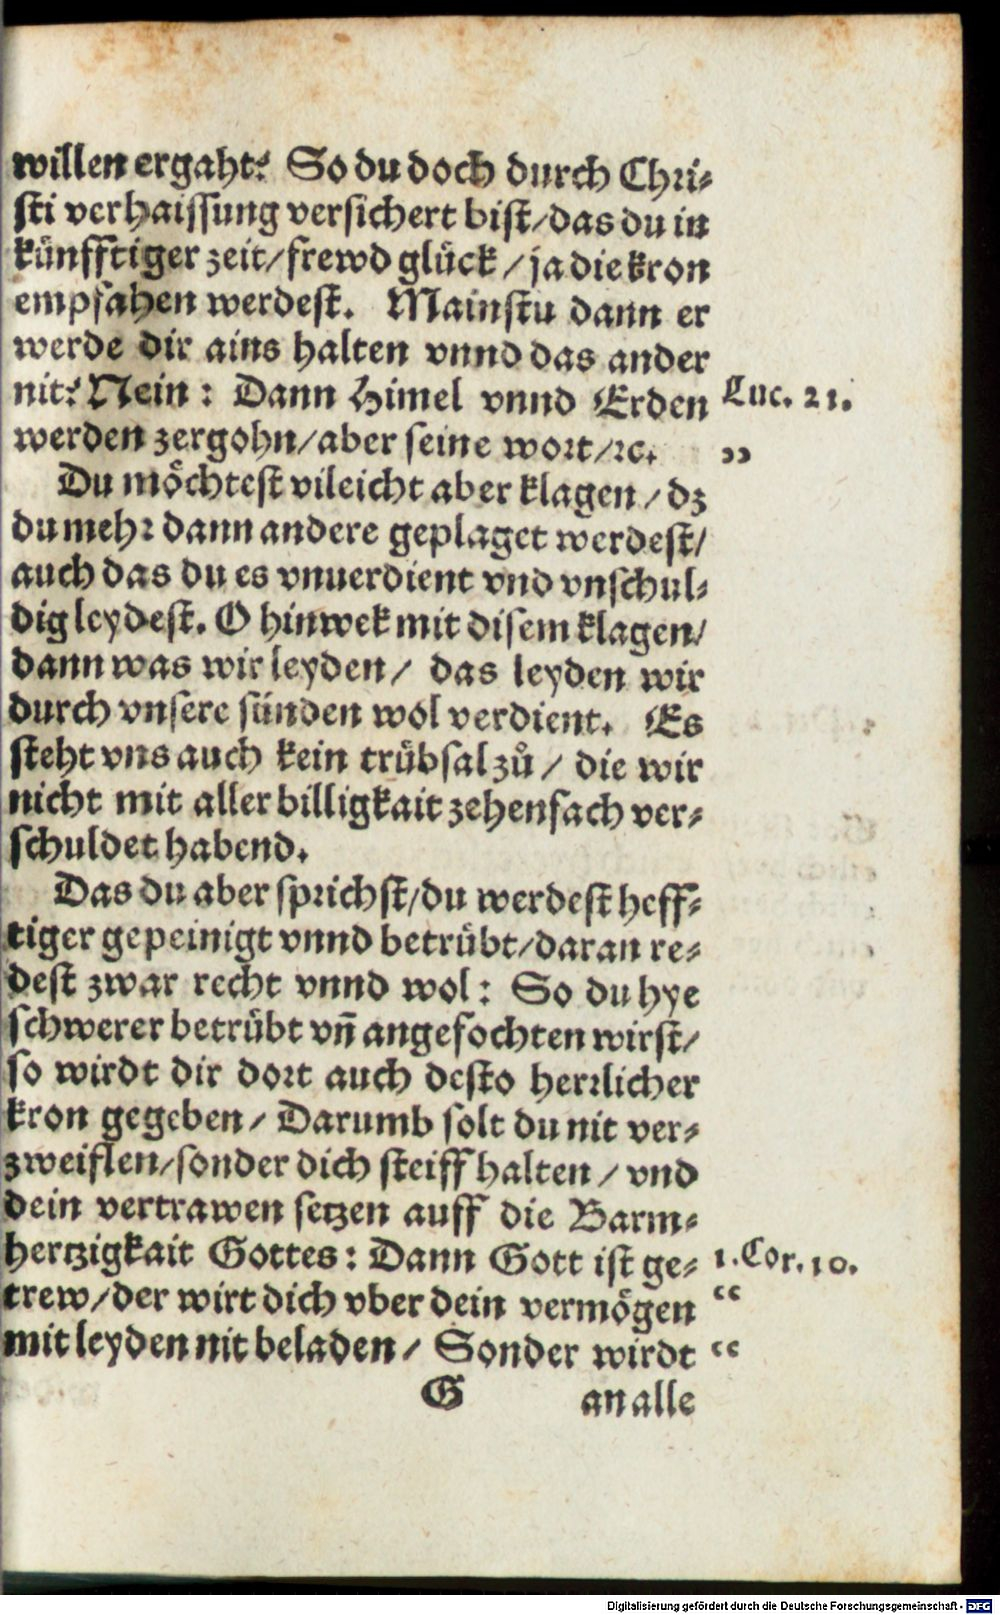 willen ergaht? So du doch durch Chri-
sti verhaissung versichert bist/das du in
künfftiger zeit/frewd glück/ja die kron
empfahen werdest. Mainstu dann er
werde dir ains halten vnnd das ander
nit? Nein: Dann Himel vnnd Erden
Luc. 21.
werden zergohn/aber seine wort/ꝛc.
„
Du möchtest vileicht aber klagen/dz
du mehr dann andere geplaget werdest/
auch das du es vnuerdient vnd vnschul-
dig leydest. O hinwek mit disem klagen/
dann was wir leyden/ das leyden wir
durch vnsere sünden wol verdient. Es
steht vns auch kein trübsal zů/ die wir
nicht mit aller billigkait zehenfach ver-
schuldet habend.
Das du aber sprichst/du werdest heff-
tiger gepeinigt vnnd betrübt/daran re-
dest zwar recht vnnd wol: So du hye
schwerer betrübt vñ angefochten wirst/
so wirdt dir dort auch desto herrlicher
kron gegeben/ Darumb solt du nit ver-
zweiflen/sonder dich steiff halten/ vnd
dein vertrawen setzen auff die Barm-
hertzigkait Gottes: Dann Gott ist ge-
1. Cor. 10.
trew/der wirt dich vber dein vermögen
“
mit leyden nit beladen/ Sonder wirdt
“
G an alle
Digitalisierung gefördert durch die Deutsche Forschungsgemeinschaft - DFG